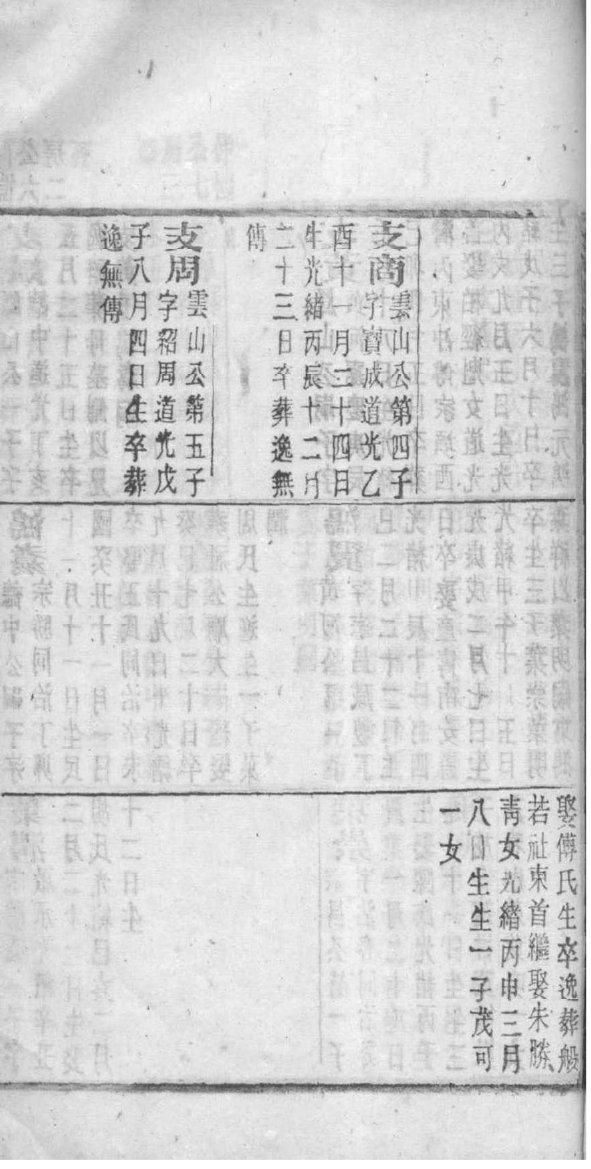 支商雲山公第四子
字寶成道光乙
酉十一月二十四日
生光緒丙辰十二月
二十三日卒葬逸無
傳
支周雲山公第五子
字紹周道光戊
子八月四日生卒葬
逸無傳
娶傅氏生卒逸葬般
若社東首繼娶朱勝
青女光緒丙申三月
八日生生一子茂可
一女